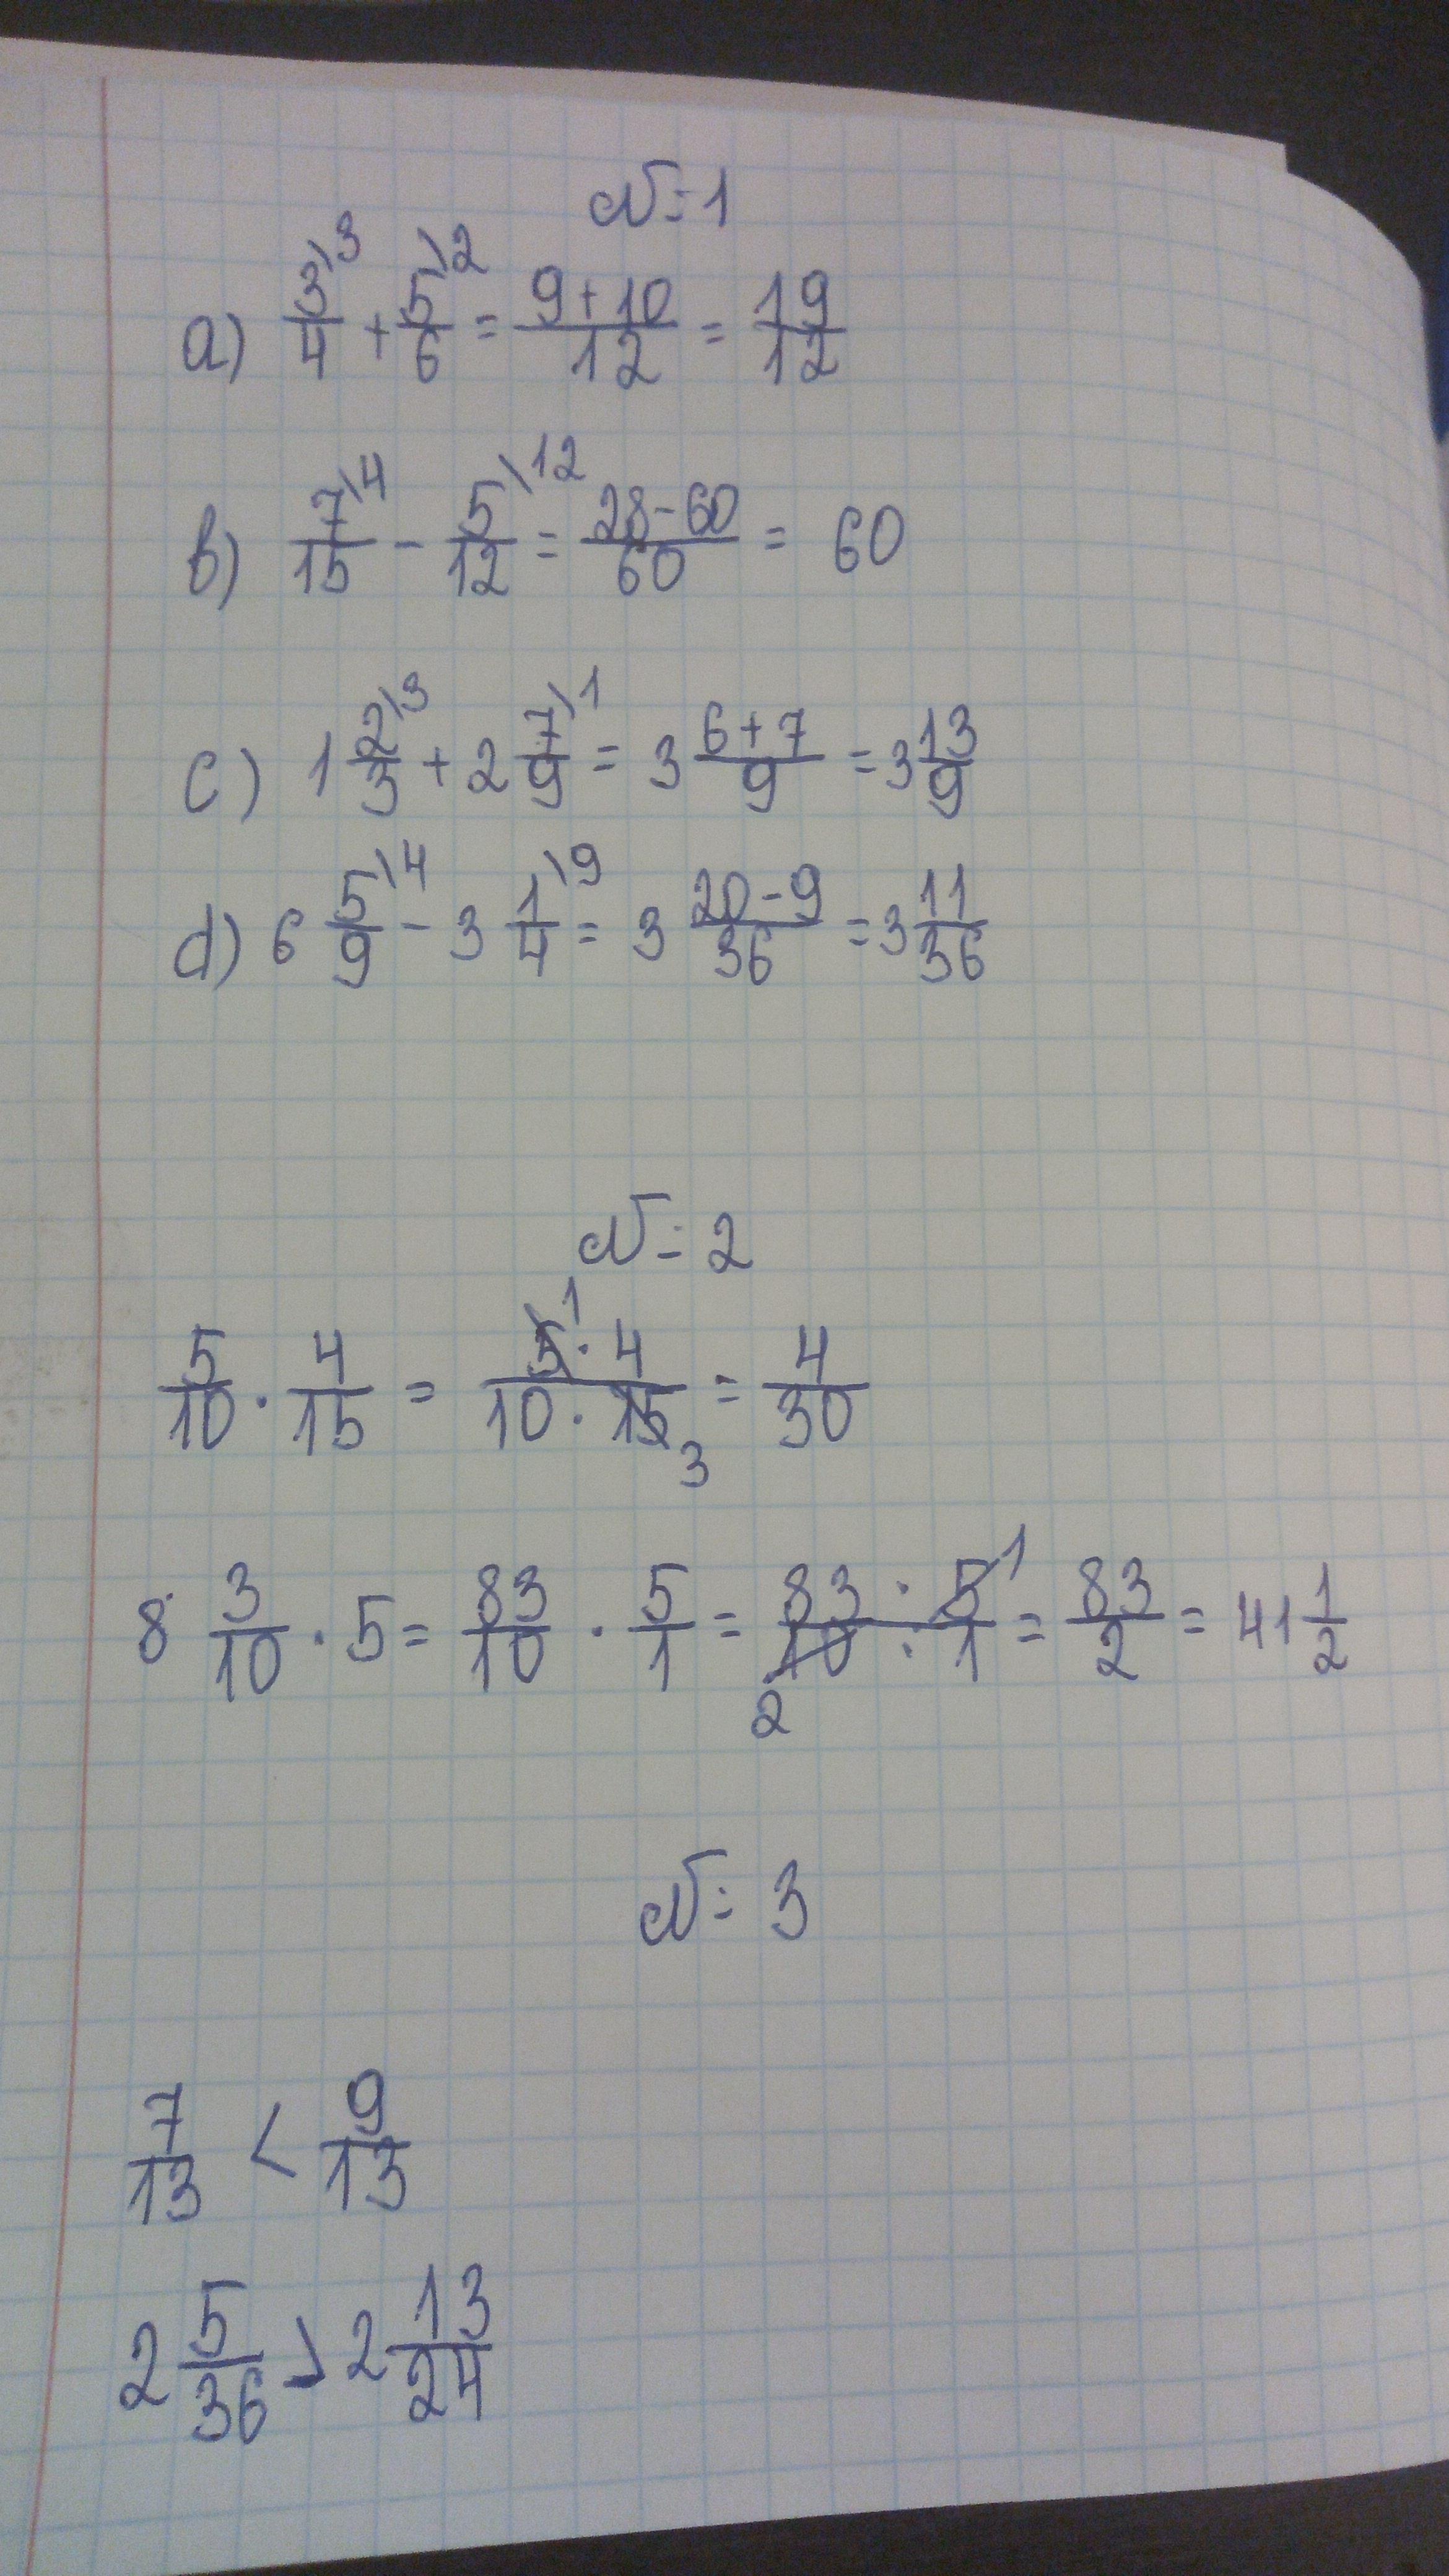 №1
a) 3\3/4 + 5\2/6 = 9+10/12 = 19/12
b) 7\4/15 - 5\12/12 = 28-60/60 = 60
c) 1 2\3/3 + 2 7\1/9 = 3 6+7/9 = 3 13/9
d) 6 5\4/9 - 3 1\9/4 = 3 20-9/36 = 3 11/36
№2
5/10 · 4/15 = 5 1 · 4/10 · 15 3 = 4/30
8 3/10 · 5 = 83/10 · 5/1 = 83 · 5 1/10 2 · 1 = 83/2 = 41 1/2
№3
7/13 < 9/13
2 5/36 > 2 13/24